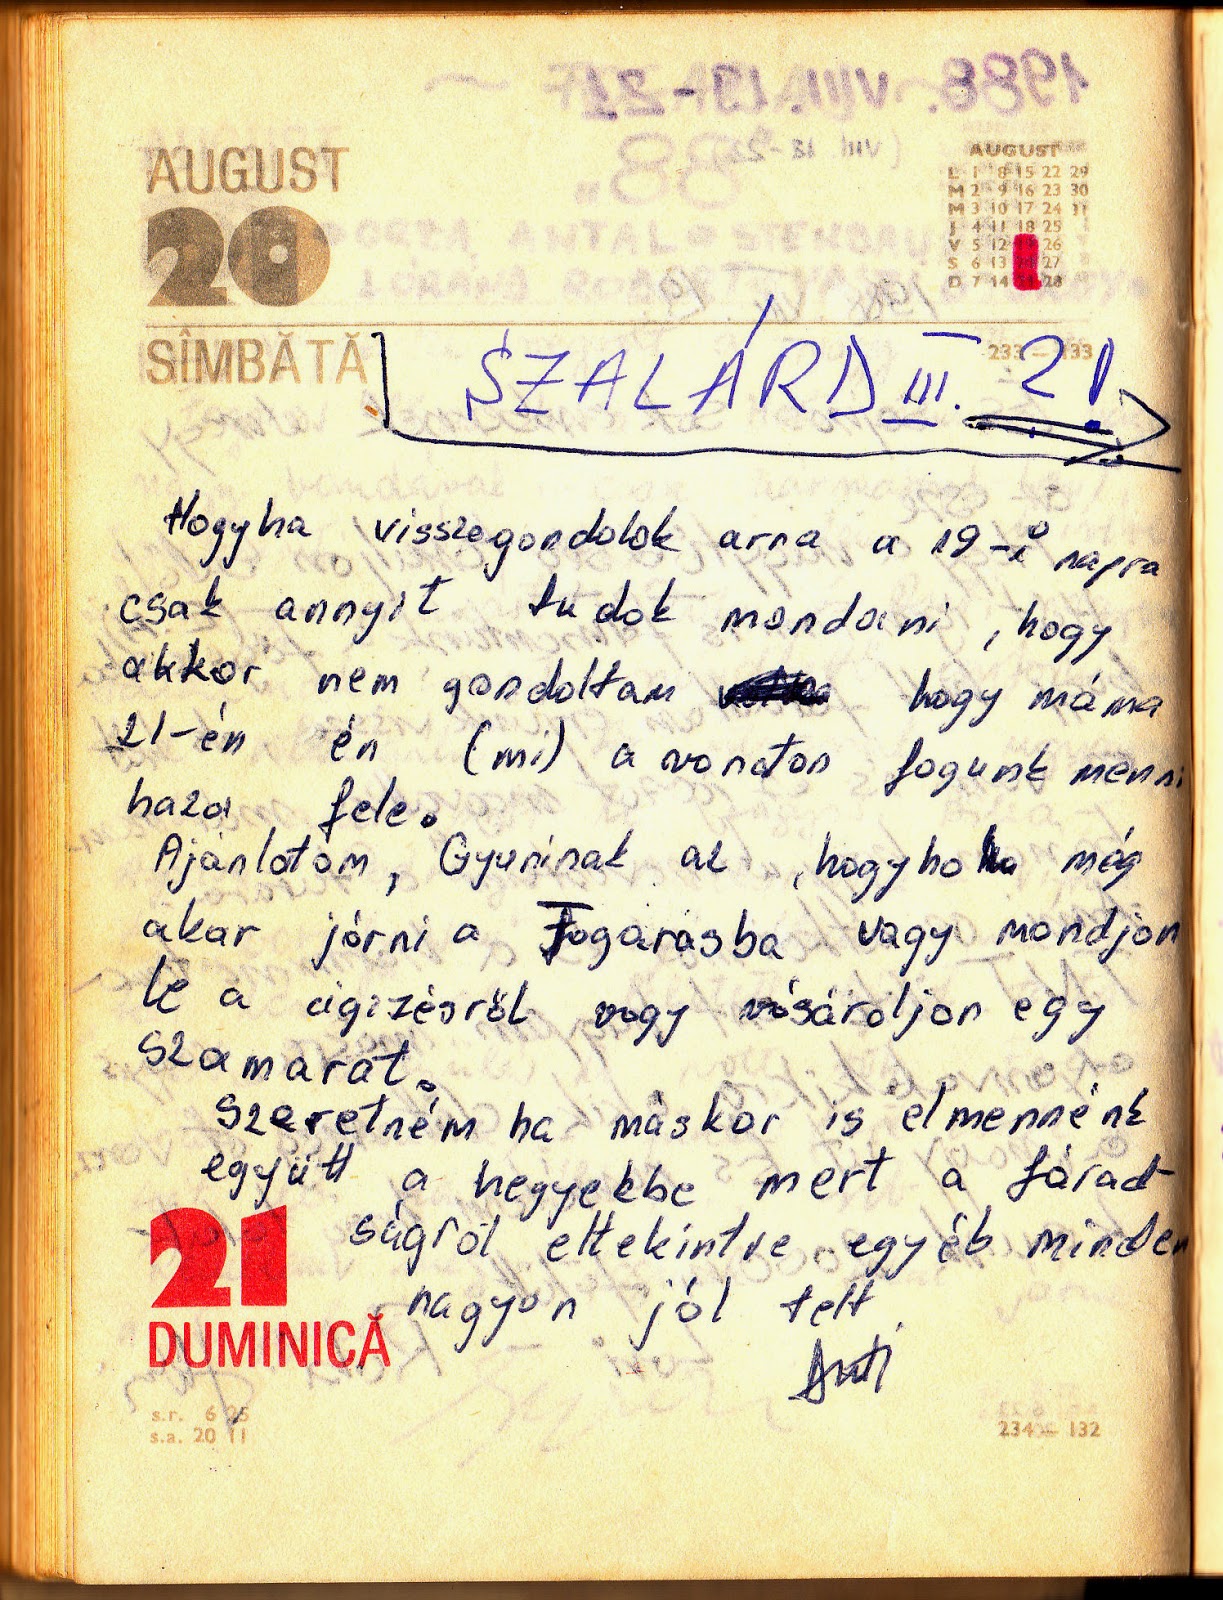 AUGUST
20
SÎMBĂTĂ
AUGUST
L 1 8 15 22 29
M 2 9 16 23 30
M 3 10 17 24 31
J 4 11 18 25
V 5 12 19 26
S 6 13 20 27
D 7 14 21 28
233 – 133
SZALÁRD III. 21
Hogyha visszagondolok arra a 19-i napra
csak annyit tudok mondani, hogy
akkor nem gondoltam hogy máma
21-én én (mi) a vonaton fogunk menni
haza fele.
Ajánlatom, Gyurinak az, hogyha még
akar járni a Fogarasba vagy mondjon
le a cigizésről vagy vásároljon egy
szamarat.
Szeretném ha máskor is elmennénk
együtt a hegyekbe mert a fárad-
ságról eltekintve egyéb minden
nagyon jól telt
Anti
21
DUMINICĂ
s.r. 6 25
s.a. 20 11
234 – 132